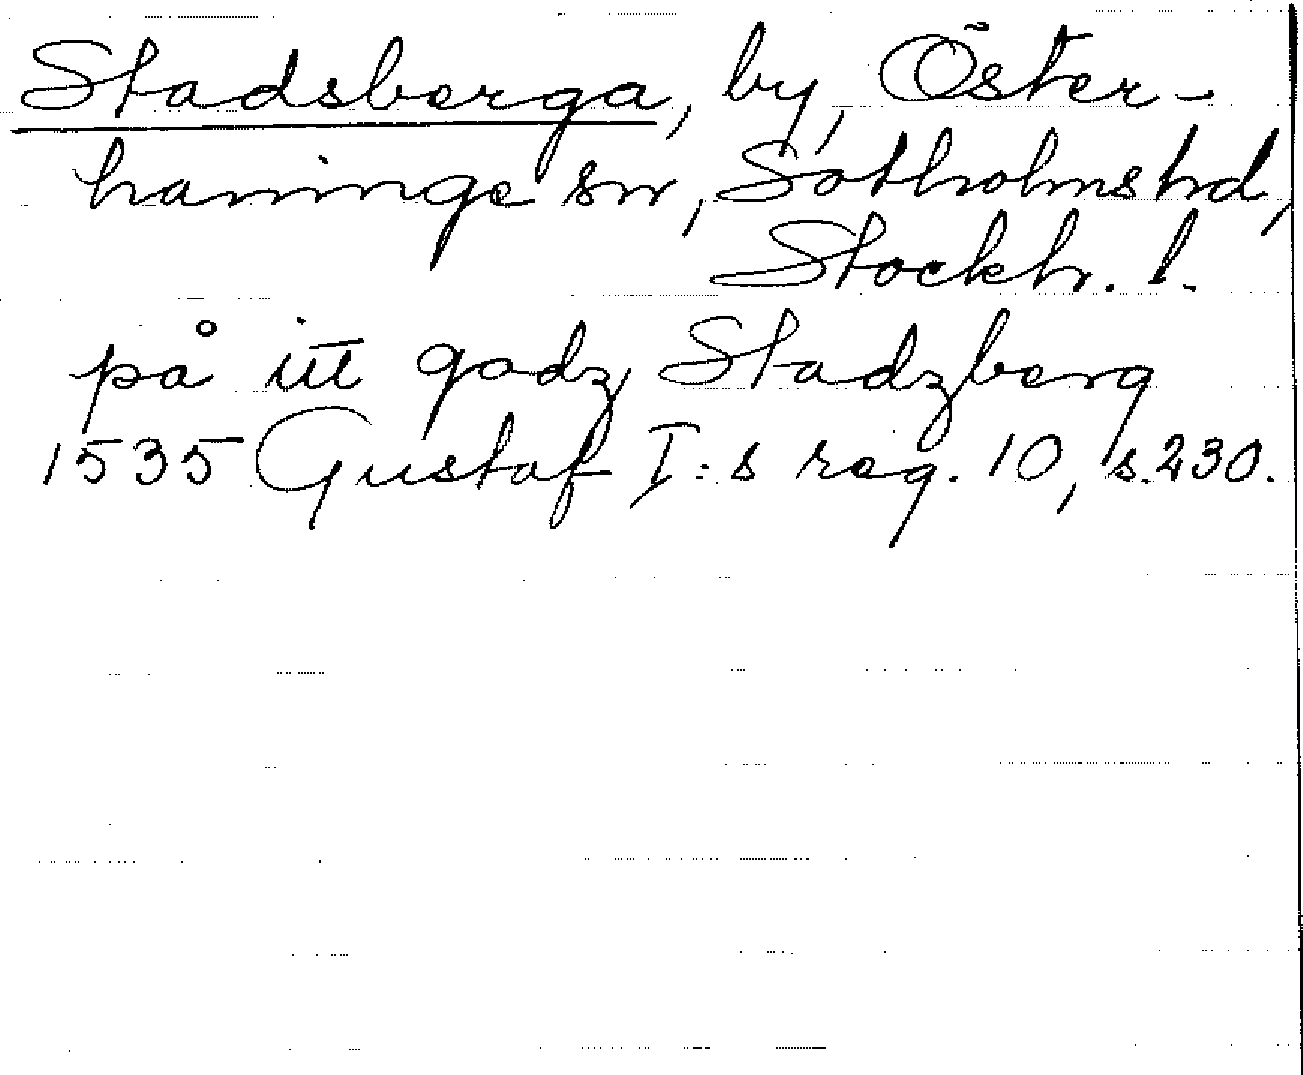 Stadsberga, by, Öster-
haninge sn, Sotholms hd,
Stockh. l.
på itt godz Stadzberg
1535 Gustaf I:s reg. 10, s. 230.